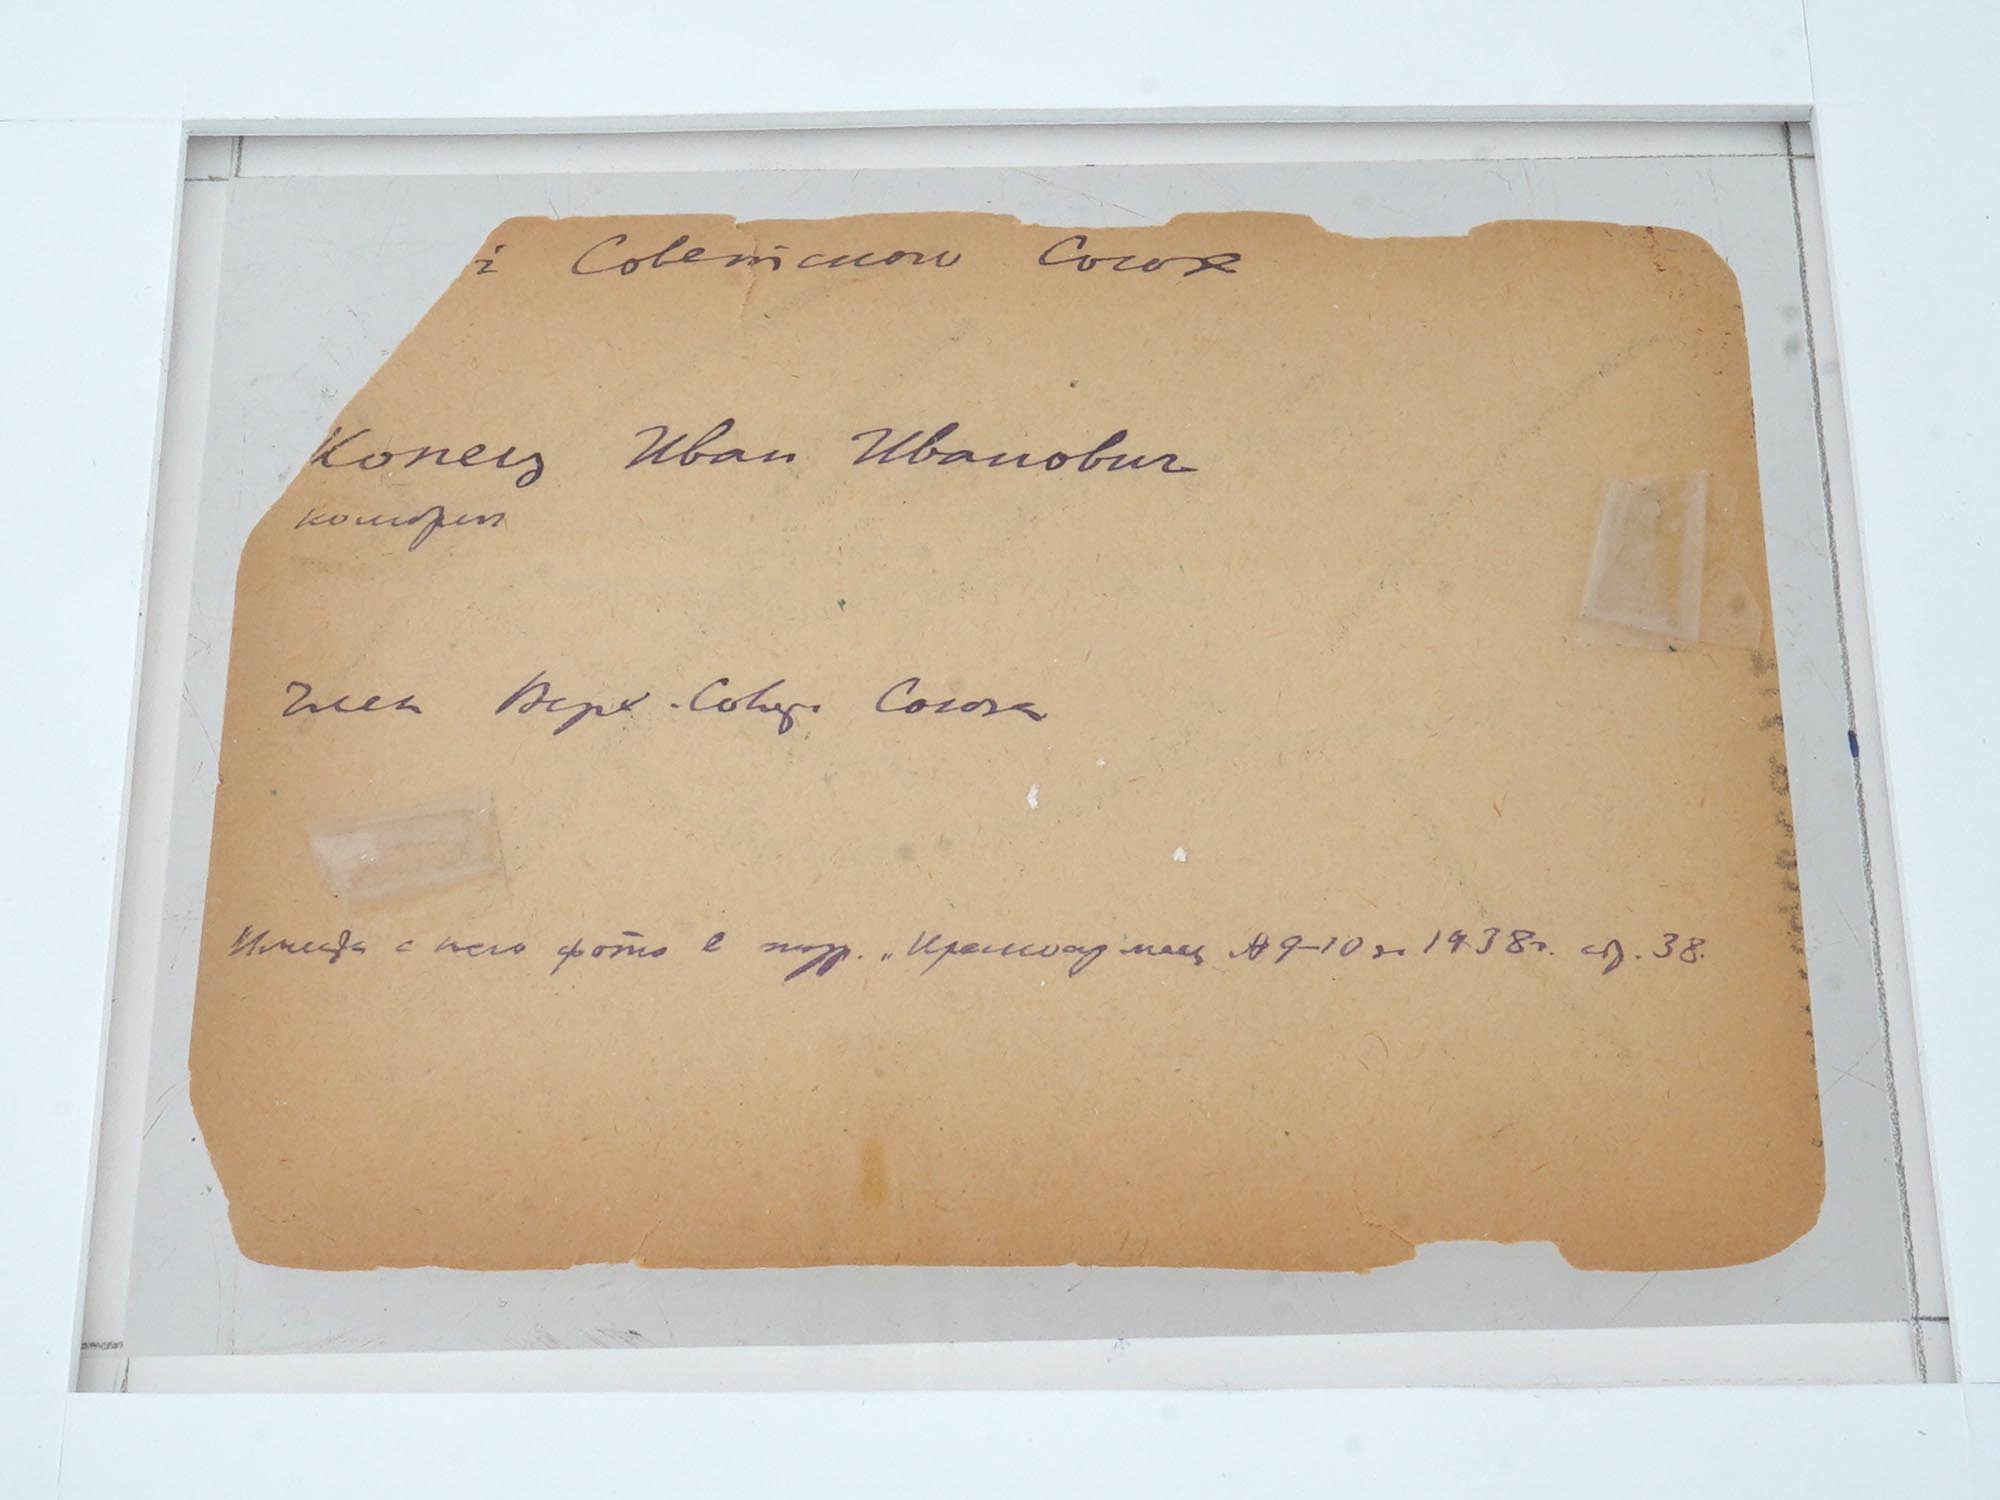 й Советского Союза
Копец Иван Иванович
комбриг
Член Верх. Совер. Союза
Имеется с него фото в жур. „Красноармеец № 9-10 за 1938 г. стр. 38.